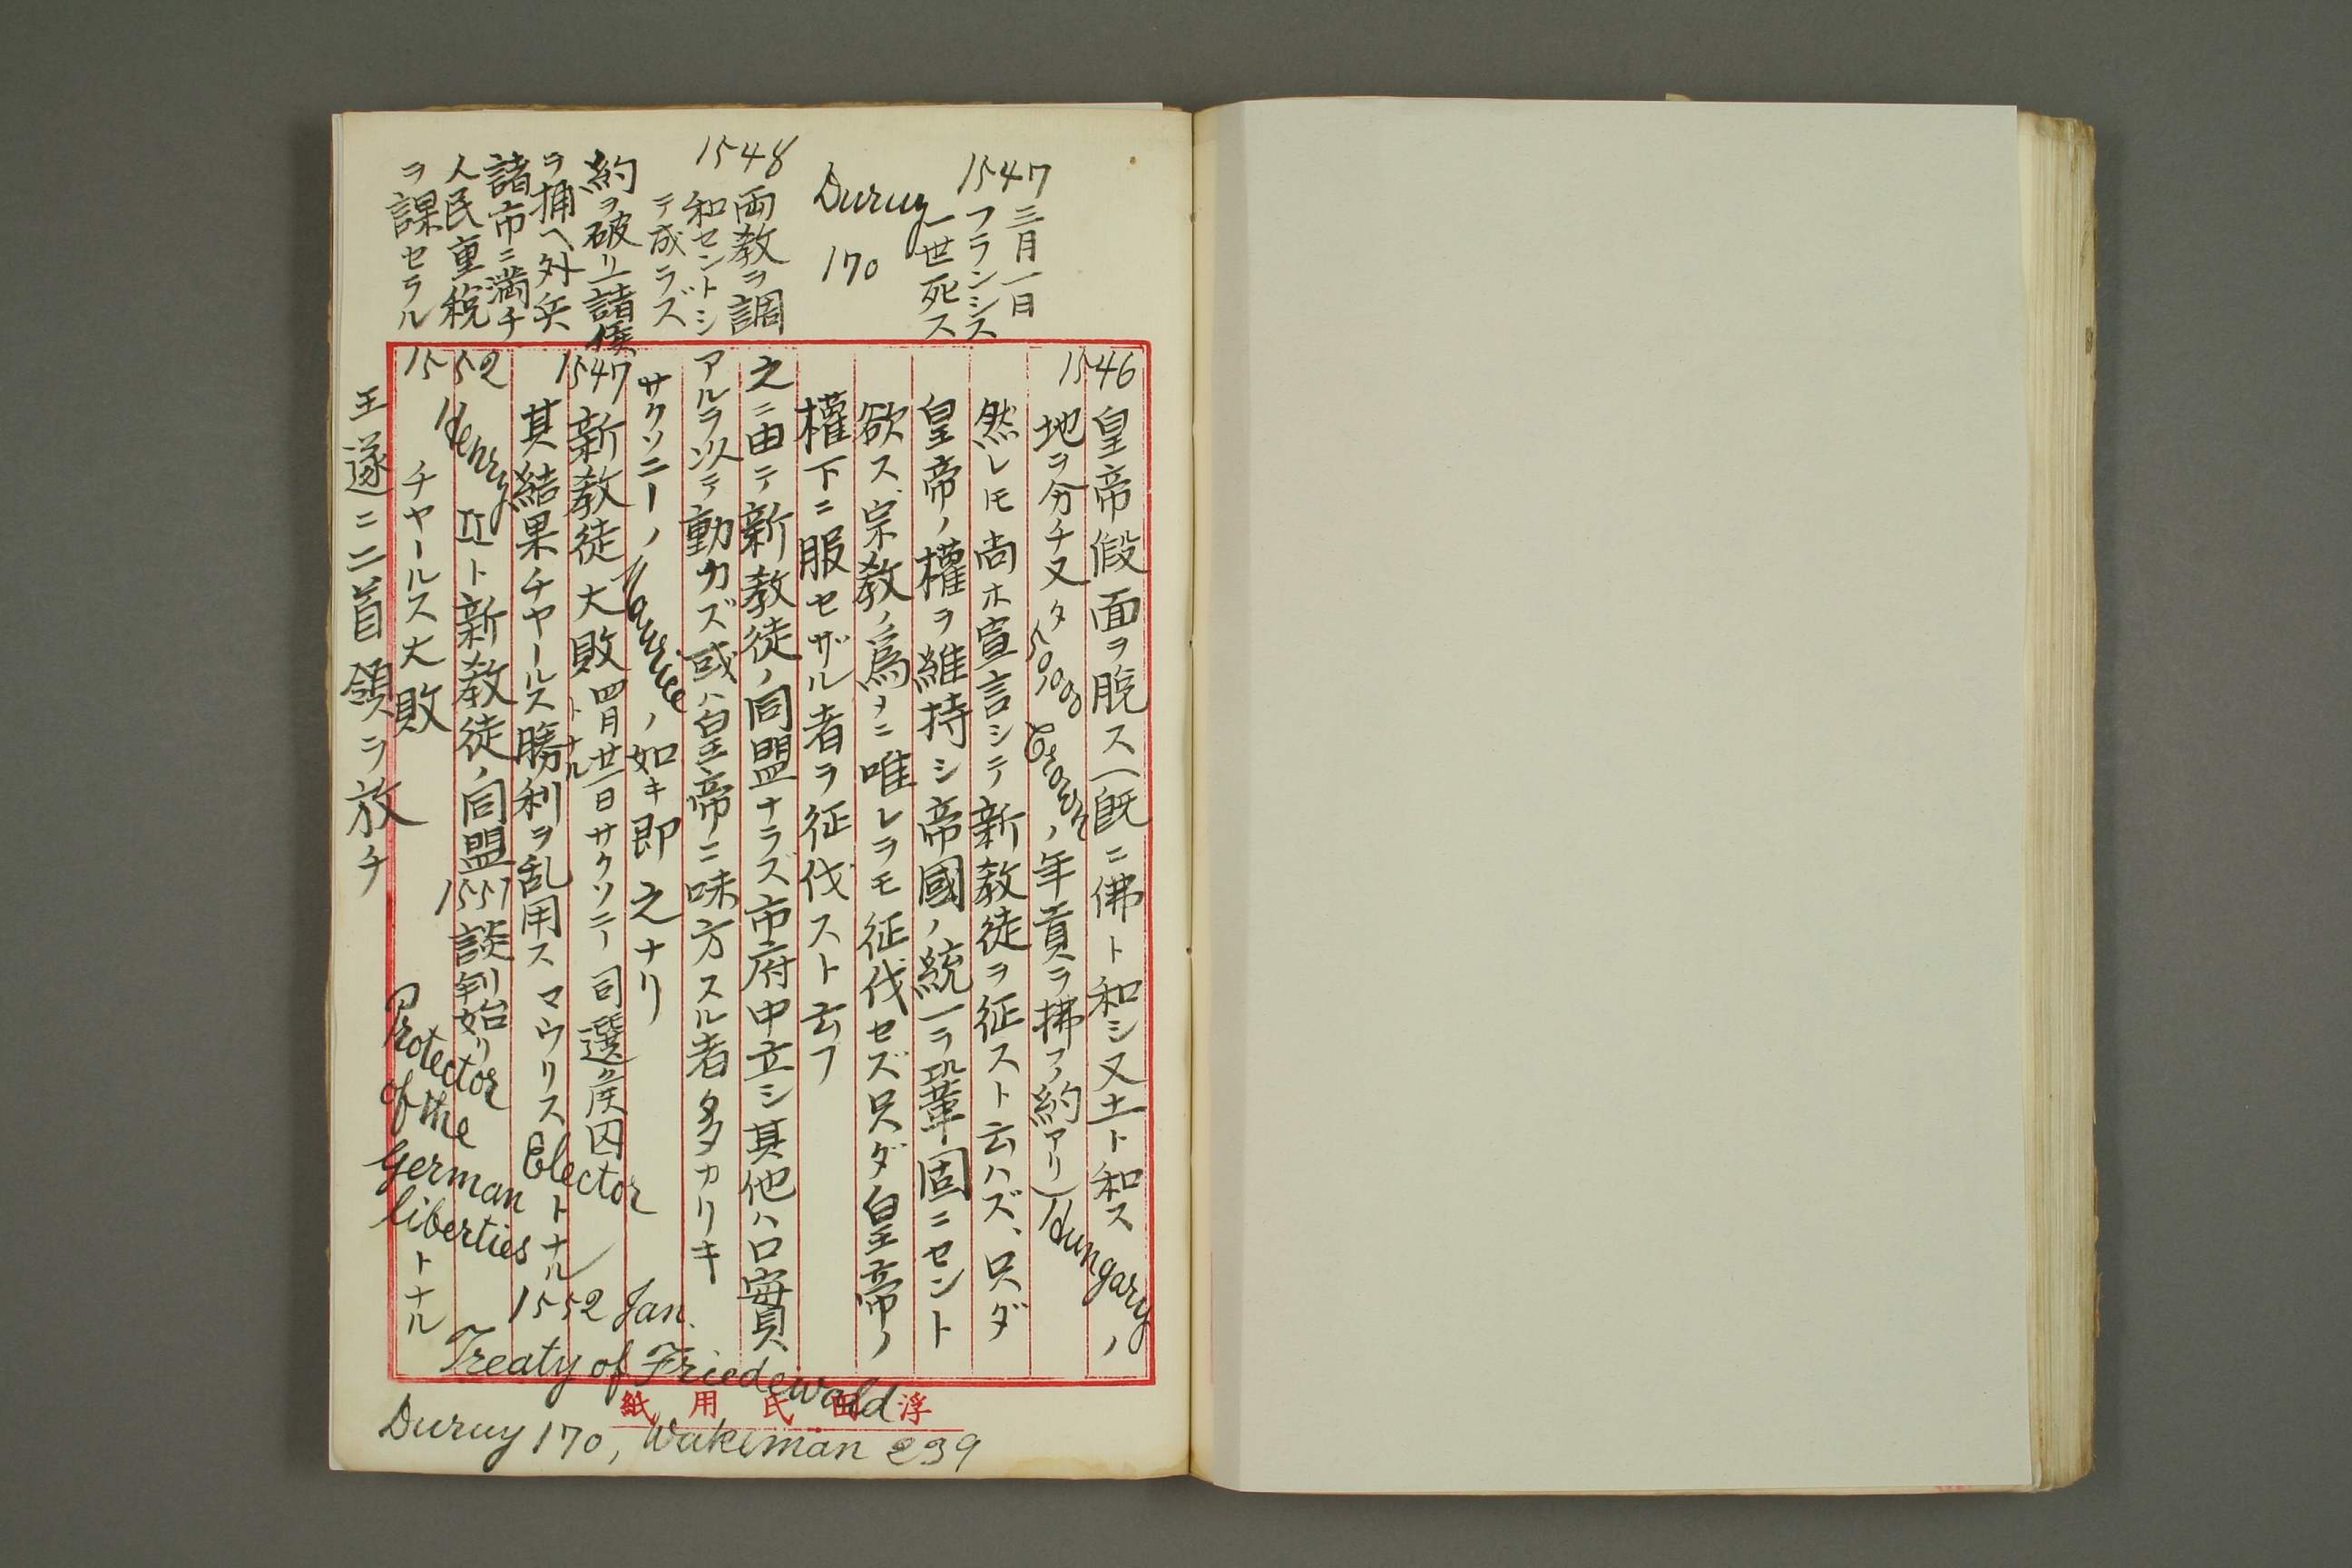 1547三月一日
フランシス
一世死ス
Duruy
170
1548両教ヲ調
和セントシ
テ成ラズ
約ヲ破リ諸侯
ヲ捕ヘ外兵
諸市ニ満チ
人民重税
ヲ課セラル
1546皇帝假面ヲ脱ス(既ニ佛ト和シ又土ト和ス Hungaryノ
地ヲ分チ又タ50,000 Crownノ年貢ヲ拂フ約アリ)
然レモ尚ホ宣言シテ新教徒ヲ征スト云ハズ、只ダ
皇帝ノ權ヲ維持シ帝國ノ統一ヲ鞏固ニセント
欲ス、宗教ノ為メニ唯レヲモ征伐セズ只ダ皇帝ノ
權下ニ服セザル者ヲ征伐スト云フ
之ニ由テ新教徒ノ同盟ナラズ市府中立シ其他ハ口實
アルヲ以テ動カズ或ハ皇帝ニ味方スル者多カリキ
サクソニーノMauriceノ如キ即之ナリ
1547新教徒大敗四月廿一日サクソニー司選侯囚
トナル
其結果チャールス勝利ヲ乱用ス マウリスElectorトナル
1552 Jan.
Treaty of Friedewald
1552 Henry IIト新教徒ノ同盟1551談判始リ
チャールス大敗 Protector
of the
German
libertiesトナル
王遂ニ二首領ヲ放チ
Duruy 170, Wakeman 239
浮田氏用紙